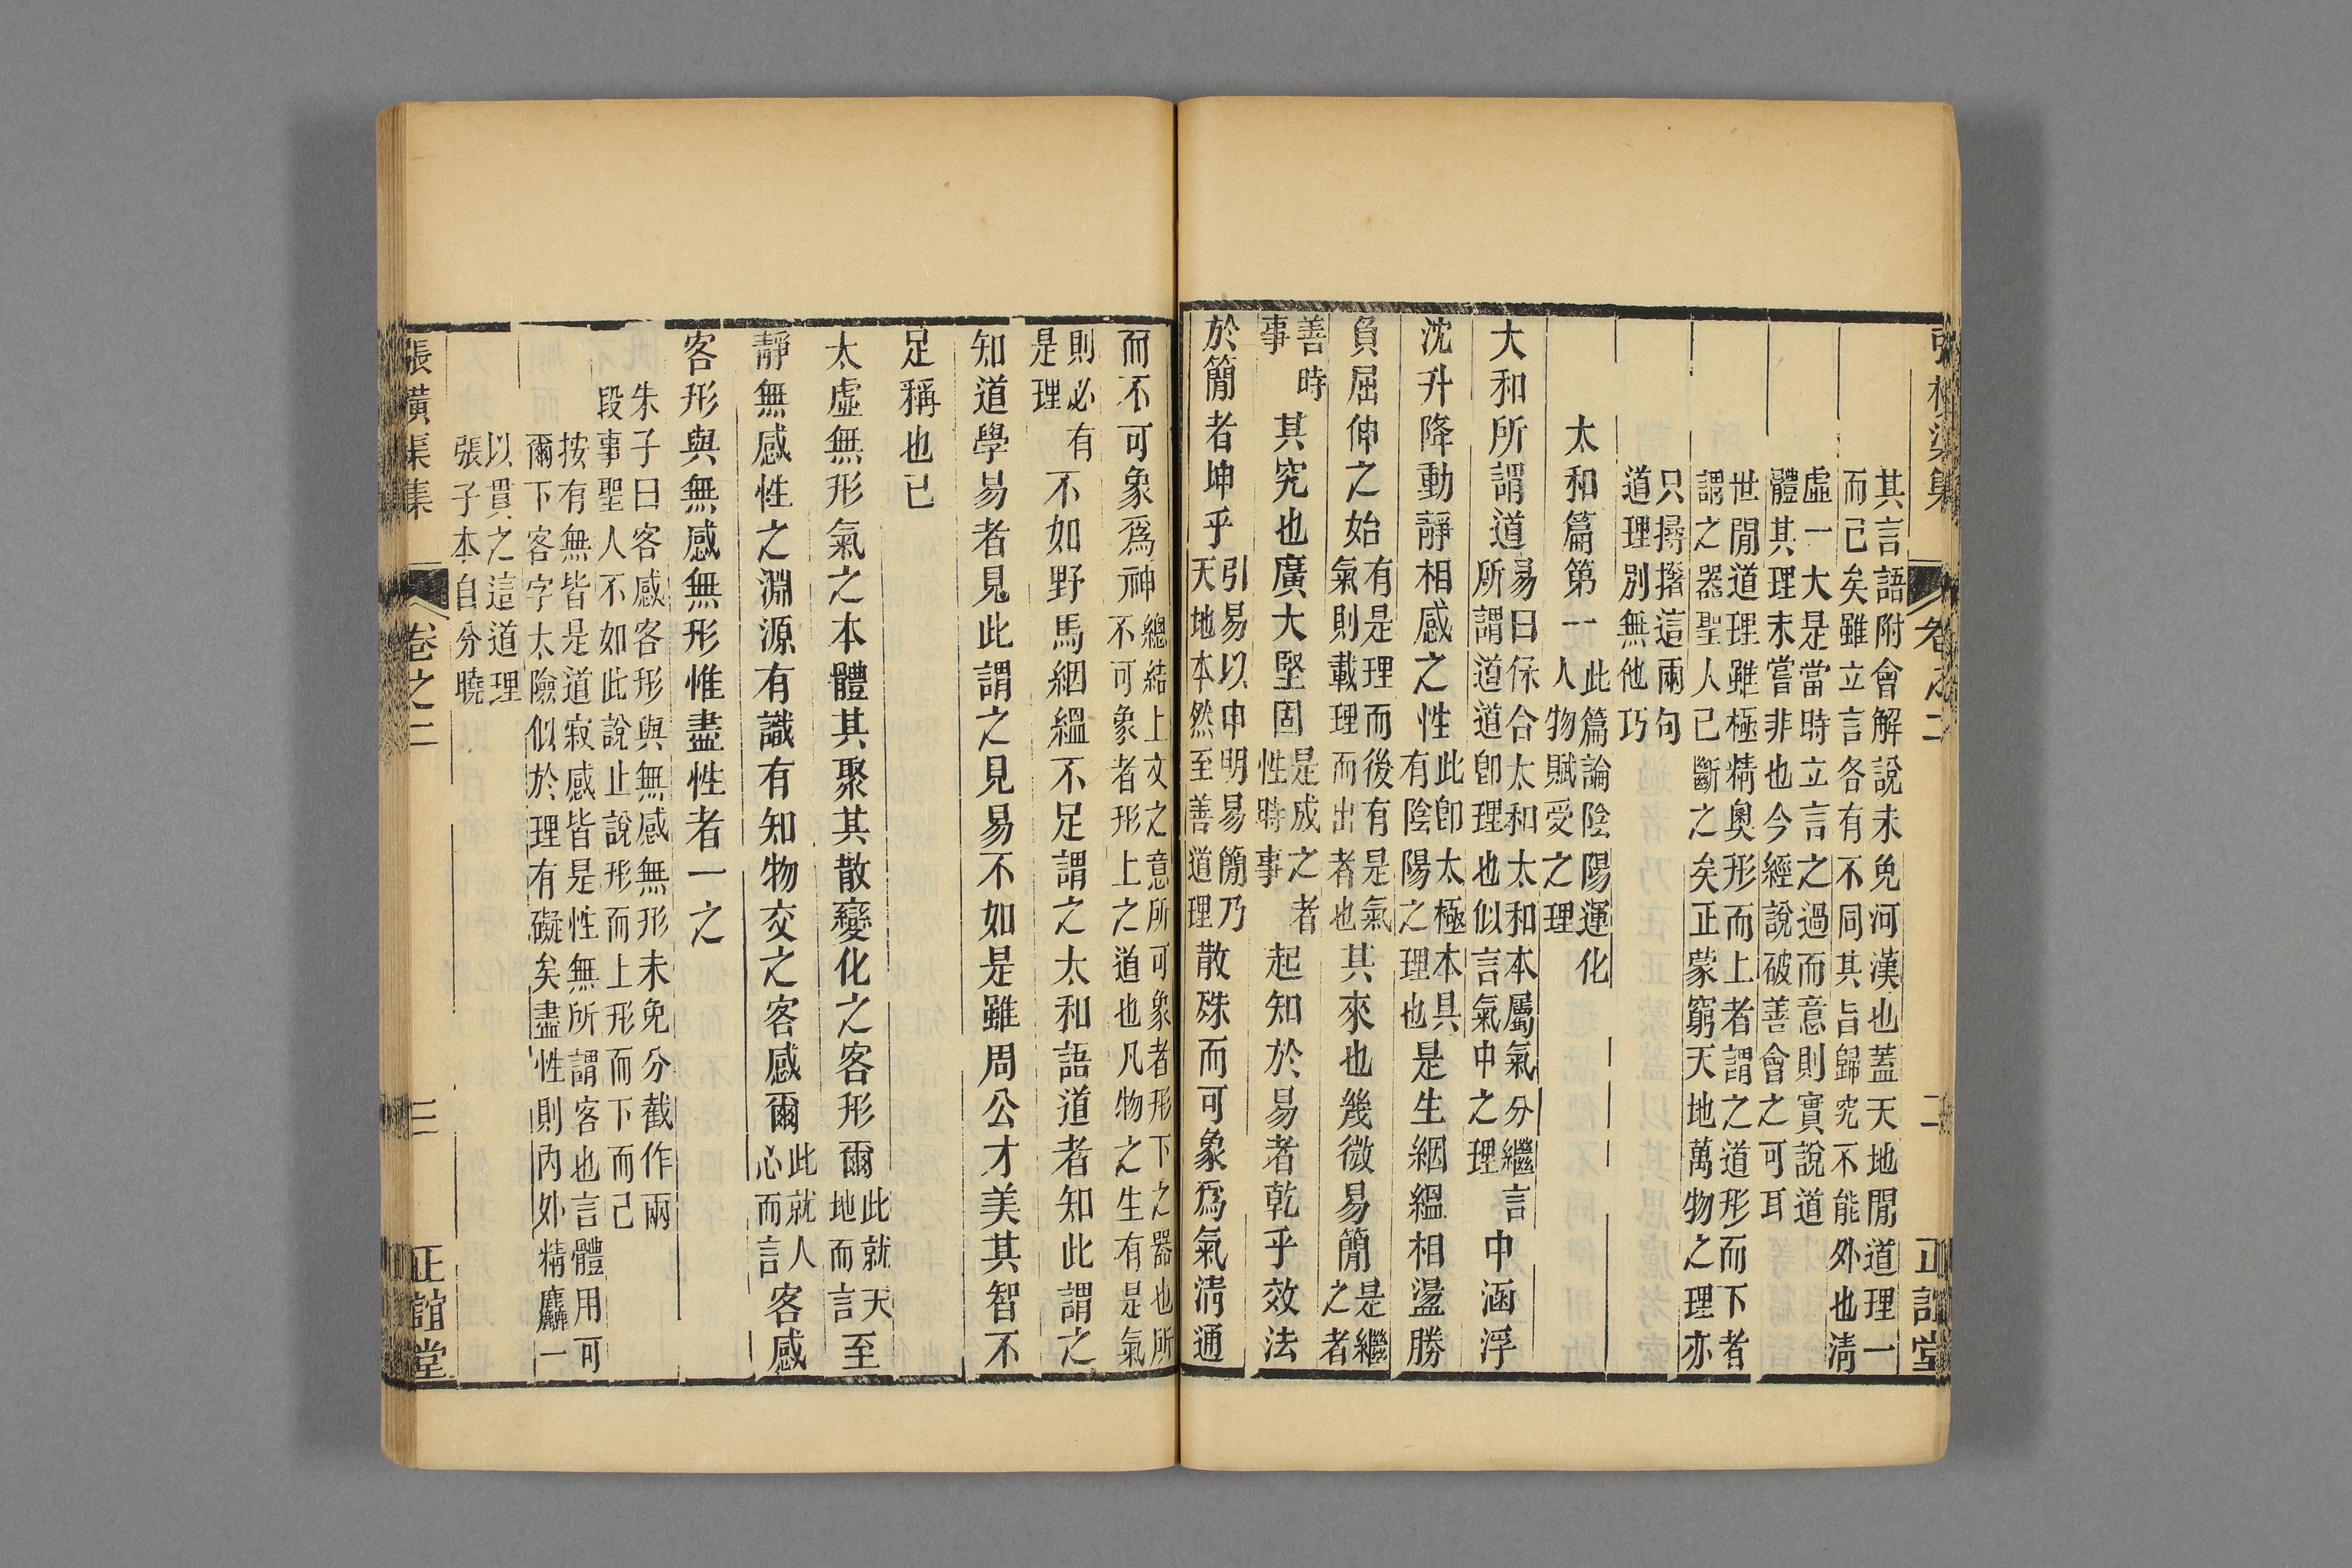 張橫渠集 卷之二 二 正誼堂
其言語附會解說未免河漢也蓋天地閒道理一
而已矣雖立言各有不同其旨歸究不能外也淸
虛一大是當時立言之過而意則實說道
體其理未嘗非也今經說破善會之可耳
世閒道理雖極精奧形而上者謂之道形而下者
謂之器聖人已斷之矣正蒙窮天地萬物之理亦
只撏撦這兩句
道理別無他巧
太和篇第一 此篇論陰陽運化人物賦受之理
大和所謂道易曰保合太和太和本屬氣分繼言所謂道道卽理也似言氣中之理中涵浮
沈升降動靜相感之性此卽太極本具有陰陽之理也是生絪縕相盪勝
負屈伸之始有是理而後有是氣氣則載理而出者也其來也幾微易簡是繼之者
善時事其究也廣大堅固是成之者性時事起知於易者乾乎效法
於簡者坤乎引易以申明易簡乃天地本然至善道理散殊而可象爲氣淸通
而不可象爲神總結上文之意所可象者形下之器也所不可象者形上之道也凡物之生有是氣
則必有是理不如野馬絪縕不足謂之太和語道者知此謂之
知道學易者見此謂之見易不如是雖周公才美其智不
足稱也已
太虛無形氣之本體其聚其散變化之客形爾此就天地而言至
靜無感性之淵源有識有知物交之客感爾此就人心而言客感
客形與無感無形惟盡性者一之
朱子曰客感客形與無感無形未免分截作兩
段事聖人不如此說止說形而上形而下而已
按有無皆是道寂感皆是性無所謂客也言體用可
爾下客字太險似於理有礙矣盡性則內外精麤一
以貫之這道理
張子本自分曉
張橫渠集 卷之二 三 正誼堂